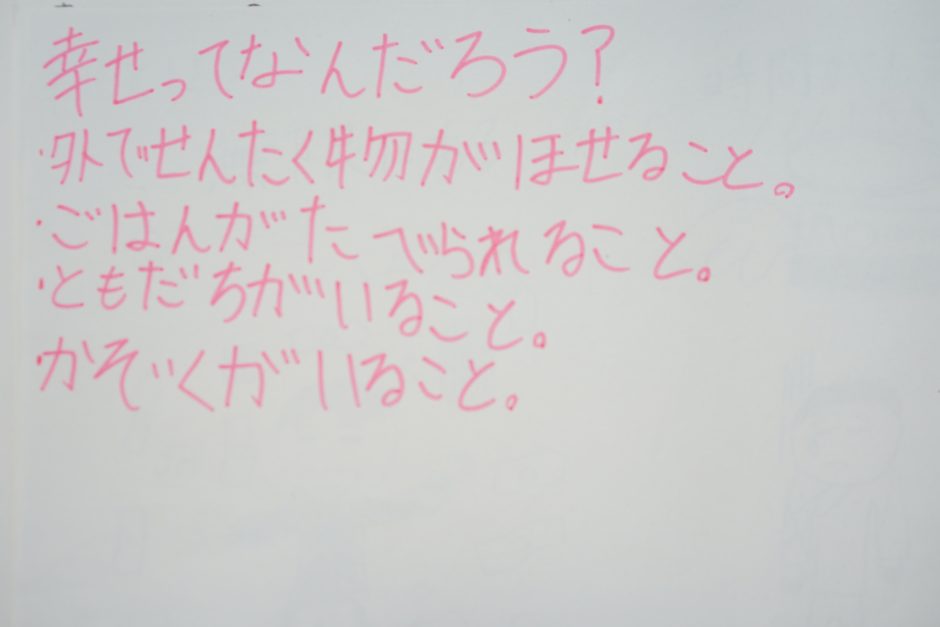 幸せってなんだろう?
・外でせんたく物がほせること。
・ごはんがたべられること。
・ともだちがいること。
・かぞくがいること。